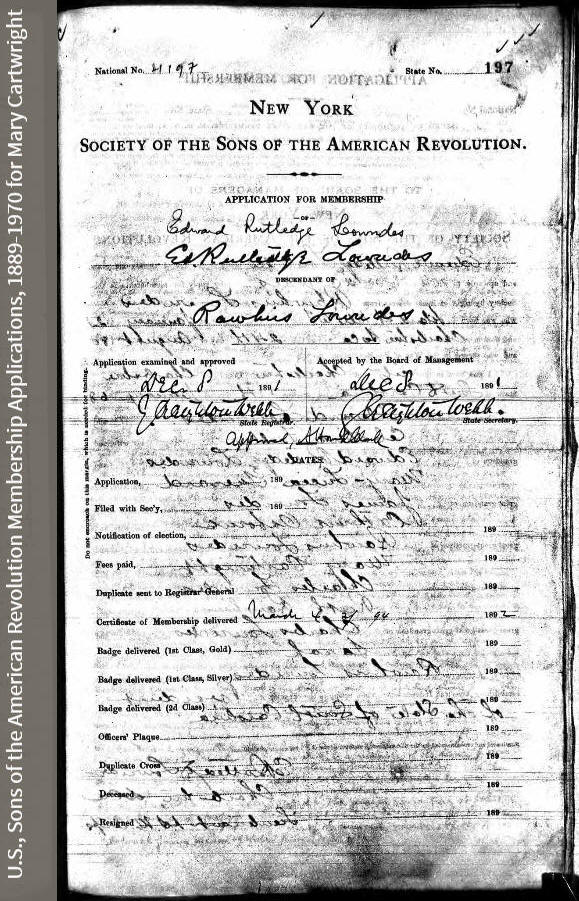 U.S., Sons of the American Revolution Membership Applications, 1889-1970 for Mary Cartwright
National No. 4197 State No. 197
NEW YORK
SOCIETY OF THE SONS OF THE AMERICAN REVOLUTION.
APPLICATION FOR MEMBERSHIP
-OF-
Edward Rutledge Lowndes
Ed. Rutledge Lowndes
DESCENDANT OF
Rawlins Lowndes
Application examined and approved Accepted by the Board of Management
Dec 8 1891 Dec 8 1891
J. Creighton Webb. J. Creighton Webb.
State Registrar. State Secretary.
Approved
DATES
Application, 189
Filed with Sec'y, 189
Notification of election, 189
Fees paid, 189
Duplicate sent to Registrar General 189
Certificate of Membership delivered March 1892
Badge delivered (1st Class, Gold) 189
Badge delivered (1st Class, Silver) 189
Badge delivered (2d Class) 189
Officers' Plaque 189
Duplicate Cross 189
Deceased 189
Resigned 189
Do not encroach on this margin, which is needed for binding.